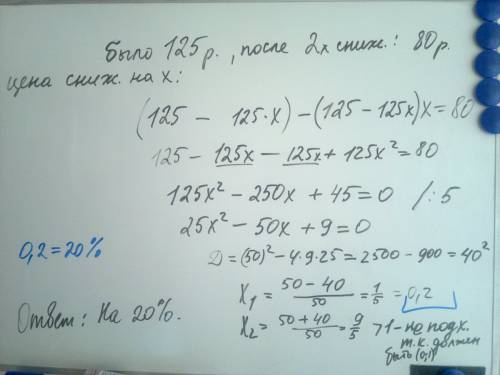 Было 125 р., после 2х сниж.: 80 р.
цена сниж. на x:
(125 - 125·x) - (125 - 125x)x = 80
125 - 125x - 125x + 125x² = 80
125x² - 250x + 45 = 0 /:5
25x² - 50x + 9 = 0
0,2 = 20%
D = (50)² - 4·9·25 = 2500 - 900 = 40²
X₁ = (50 - 40)/50 = 1/5 = 0,2
X₂ = (50 + 40)/50 = 9/5 >1 - не подх.
т.к. должен
быть (0;1)
Ответ: На 20%.